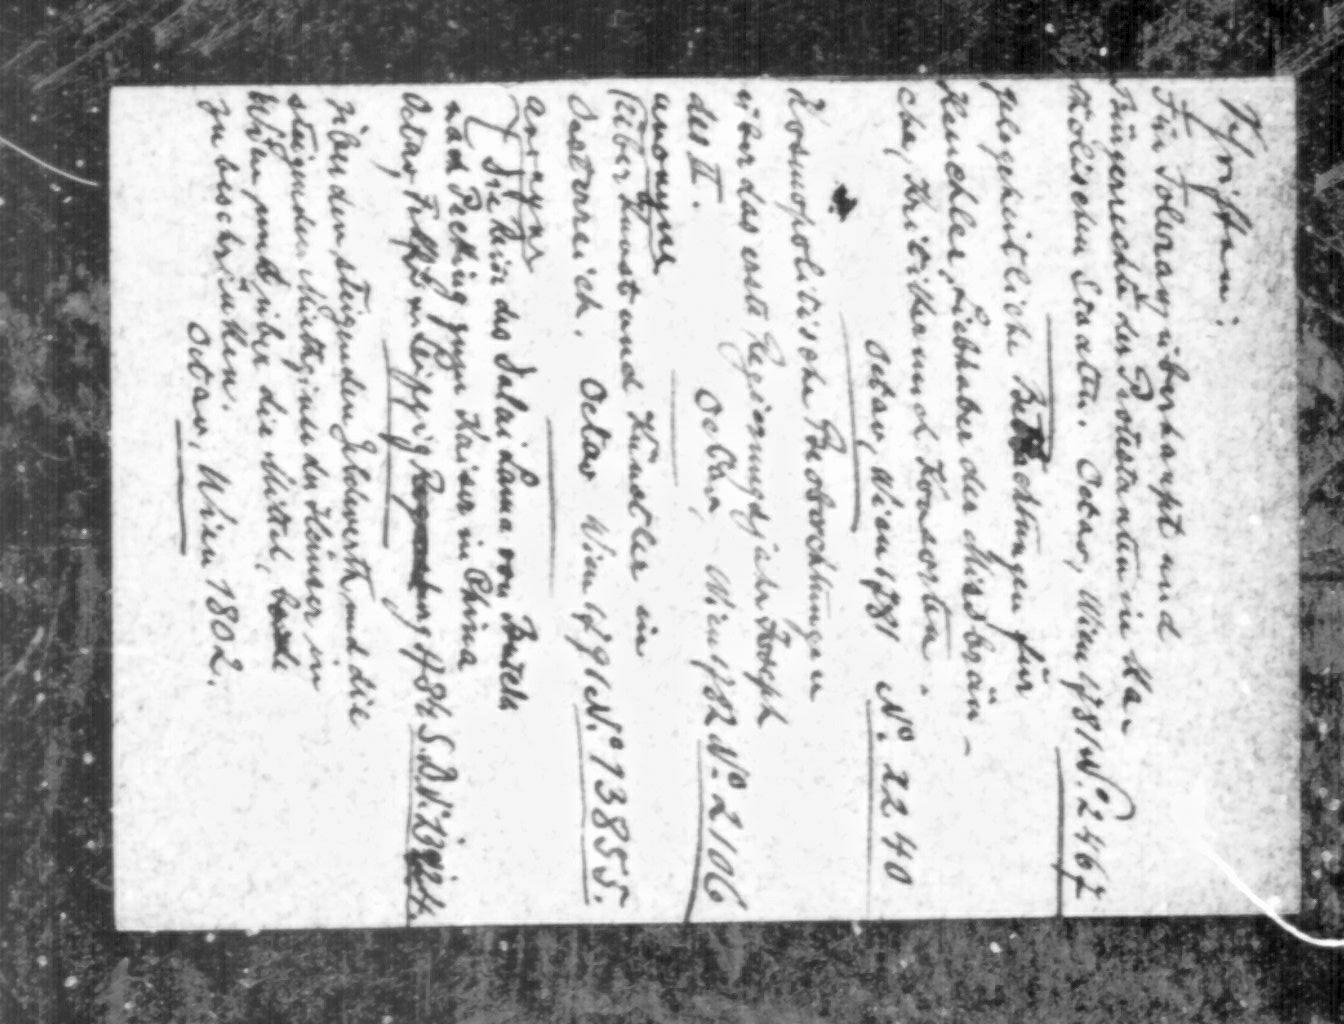 Schriften:
Für Toleranz überhaupt und
Bürgerrechte der Protestanten in ka-
tholischen Staaten. Octav, Wien 1781 No. 2467
gelegenheitliche Betrachtungen für
Heuchler, Liebhaber der Missbräu-
che, Kritiker und Konsorten.
Octav, Wien 1781 No. 2240
Kosmopolitische Beobachtungen
über das erste Regierungsjahr Joseph
des II. Octav, Wien 1782 No. 2106
anonyme
Über Kunst und Künstler in
Oesterreich. Octav Wien 1791 No. 13855.
anonym
Die Reise des Dalai Lama von
nach Pecking zum Kaiser in China
Octav, Leipzig 1784 S. D. N.
Über den steigenden Geldwerth, und die
steigenden Miethzinse der Häuser in
Wien, und über die Mittel, beide
zu beschränken.
Octav, Wien 1802.